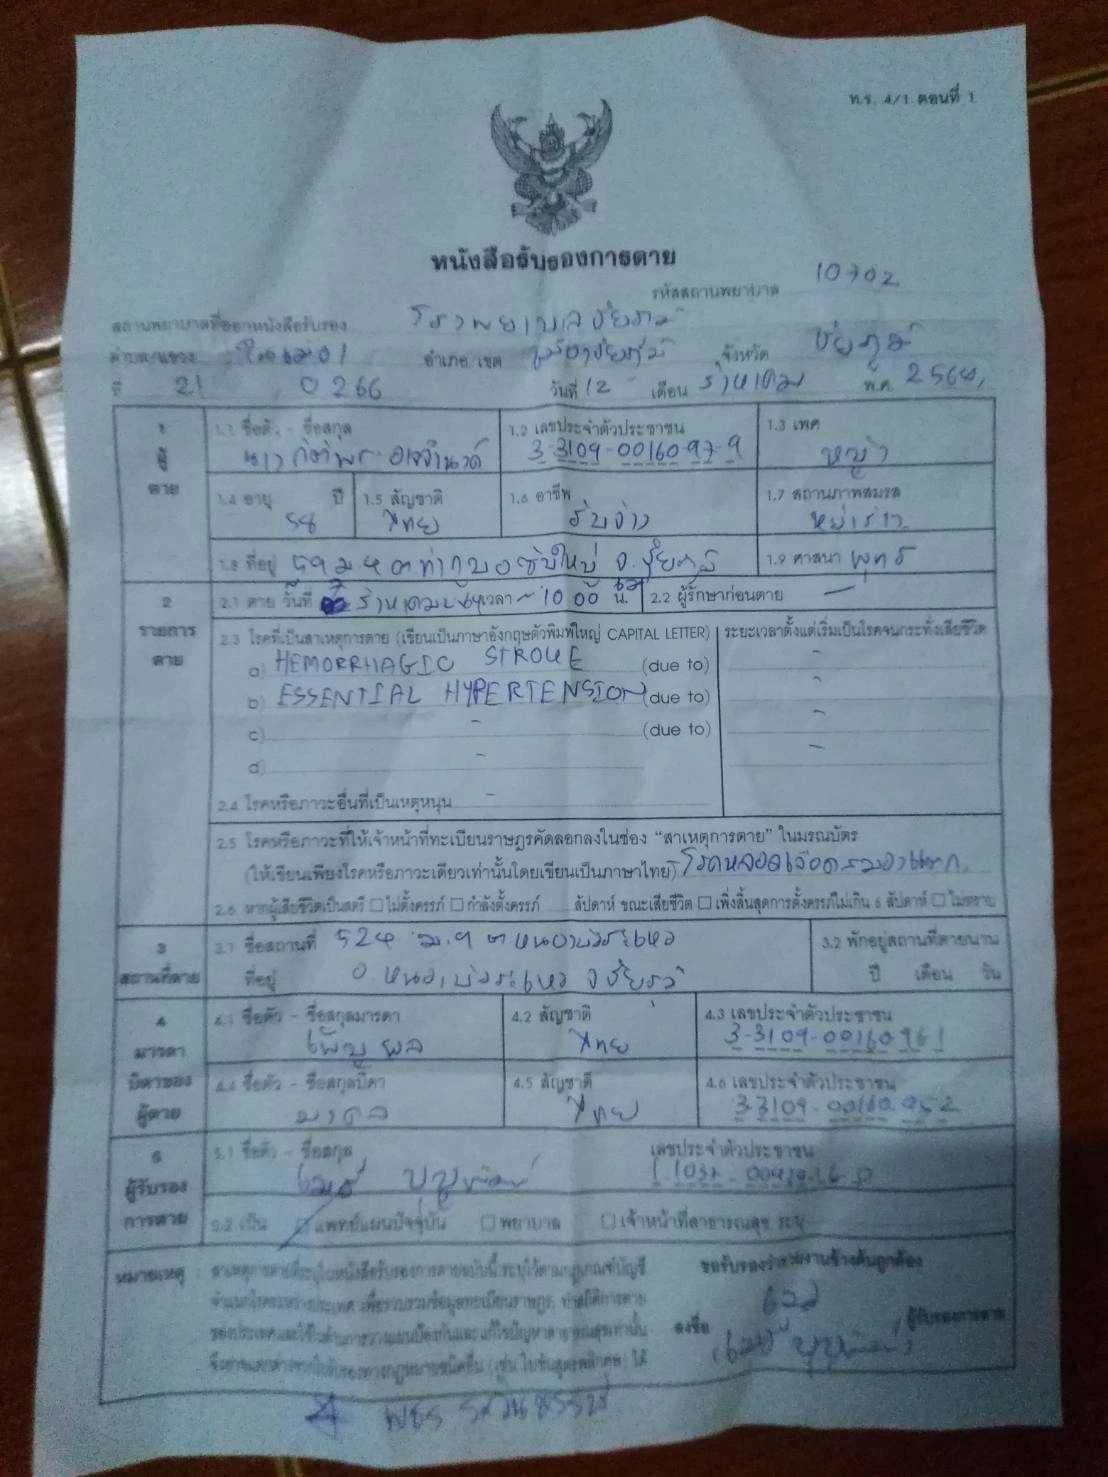 ท.ร. 4/1 ตอนที่ 1
หนังสือรับรองการตาย
รหัสสถานพยาบาล 10702
สถานพยาบาลที่ออกหนังสือรับรอง โรงพยาบาลชัยภูมิ
ตำบล/แขวง ในเมือง อำเภอ/เขต เมืองชัยภูมิ จังหวัด ชัยภูมิ
ที่ 21 0266 วันที่ 12 เดือน ธันวาคม พ.ศ. 2564
1 ผู้ตาย
1.1 ชื่อตัว - ชื่อสกุล
1.2 เลขประจำตัวประชาชน 3-3109-00160-97-9
1.3 เพศ หญิง
1.4 อายุ 58 ปี
1.5 สัญชาติ ไทย
1.6 อาชีพ รับจ้าง
1.7 สถานภาพสมรส หย่าร้าง
1.8 ที่อยู่ 59 ม.4 ต.ท่ากูบ อ.ซับใหญ่ จ.ชัยภูมิ
1.9 ศาสนา พุทธ
2 รายการตาย
2.1 ตาย วันที่ ธันวาคม เวลา ~ 10.00 น.
2.2 ผู้รักษาก่อนตาย -
2.3 โรคที่เป็นสาเหตุการตาย (เขียนเป็นภาษาอังกฤษตัวพิมพ์ใหญ่ CAPITAL LETTER) ระยะเวลาตั้งแต่เริ่มเป็นโรคจนกระทั่งเสียชีวิต
a) HEMORRHAGIC STROKE (due to) -
b) ESSENTIAL HYPERTENSION (due to) -
c) - (due to) -
d) - -
2.4 โรคหรือภาวะอื่นที่เป็นเหตุหนุน -
2.5 โรคหรือภาวะที่ให้เจ้าหน้าที่ทะเบียนราษฎรคัดลอกลงในช่อง “สาเหตุการตาย” ในมรณบัตร
(ให้เขียนเพียงโรคหรือภาวะเดียวเท่านั้นโดยเขียนเป็นภาษาไทย) โรคหลอดเลือดสมองแตก
2.6 หากผู้เสียชีวิตเป็นสตรี ไม่ตั้งครรภ์ กำลังตั้งครรภ์ สัปดาห์ ขณะเสียชีวิต เพิ่งสิ้นสุดการตั้งครรภ์ไม่เกิน 6 สัปดาห์ ไม่ทราบ
3 สถานที่ตาย
3.1 ชื่อสถานที่ 524 ม.1 ต.หนองบัวระเหว
ที่อยู่ อ.หนองบัวระเหว จ.ชัยภูมิ
3.2 พักอยู่สถานที่ตายนาน
ปี เดือน วัน
4 มารดา บิดาของผู้ตาย
4.1 ชื่อตัว - ชื่อสกุลมารดา
4.2 สัญชาติ ไทย
4.3 เลขประจำตัวประชาชน 3-3109-00160-961
4.4 ชื่อตัว - ชื่อสกุลบิดา
4.5 สัญชาติ ไทย
4.6 เลขประจำตัวประชาชน 3-3109-00160-952
5 ผู้รับรองการตาย
5.1 ชื่อตัว - ชื่อสกุล
เลขประจำตัวประชาชน
5.2 เป็น แพทย์แผนปัจจุบัน พยาบาล เจ้าหน้าที่สาธารณสุข ระบุ
หมายเหตุ : สาเหตุการตายที่ระบุในหนังสือรับรองการตายฉบับนี้ ระบุไว้ตามกฎเกณฑ์บัญชี
จำแนกโรคระหว่างประเทศ เพื่อรวบรวมข้อมูลทะเบียนราษฎร ทำสถิติการตาย
ของประเทศและใช้ในด้านการวางแผนป้องกันและแก้ไขปัญหาสาธารณสุขเท่านั้น
จึงอาจแตกต่างจากใบรับรองทางกฎหมายชนิดอื่น (เช่น ใบชันสูตรพลิกศพ) ได้
ขอรับรองว่ารายงานข้างต้นถูกต้อง
ลงชื่อ ผู้รับรองการตาย